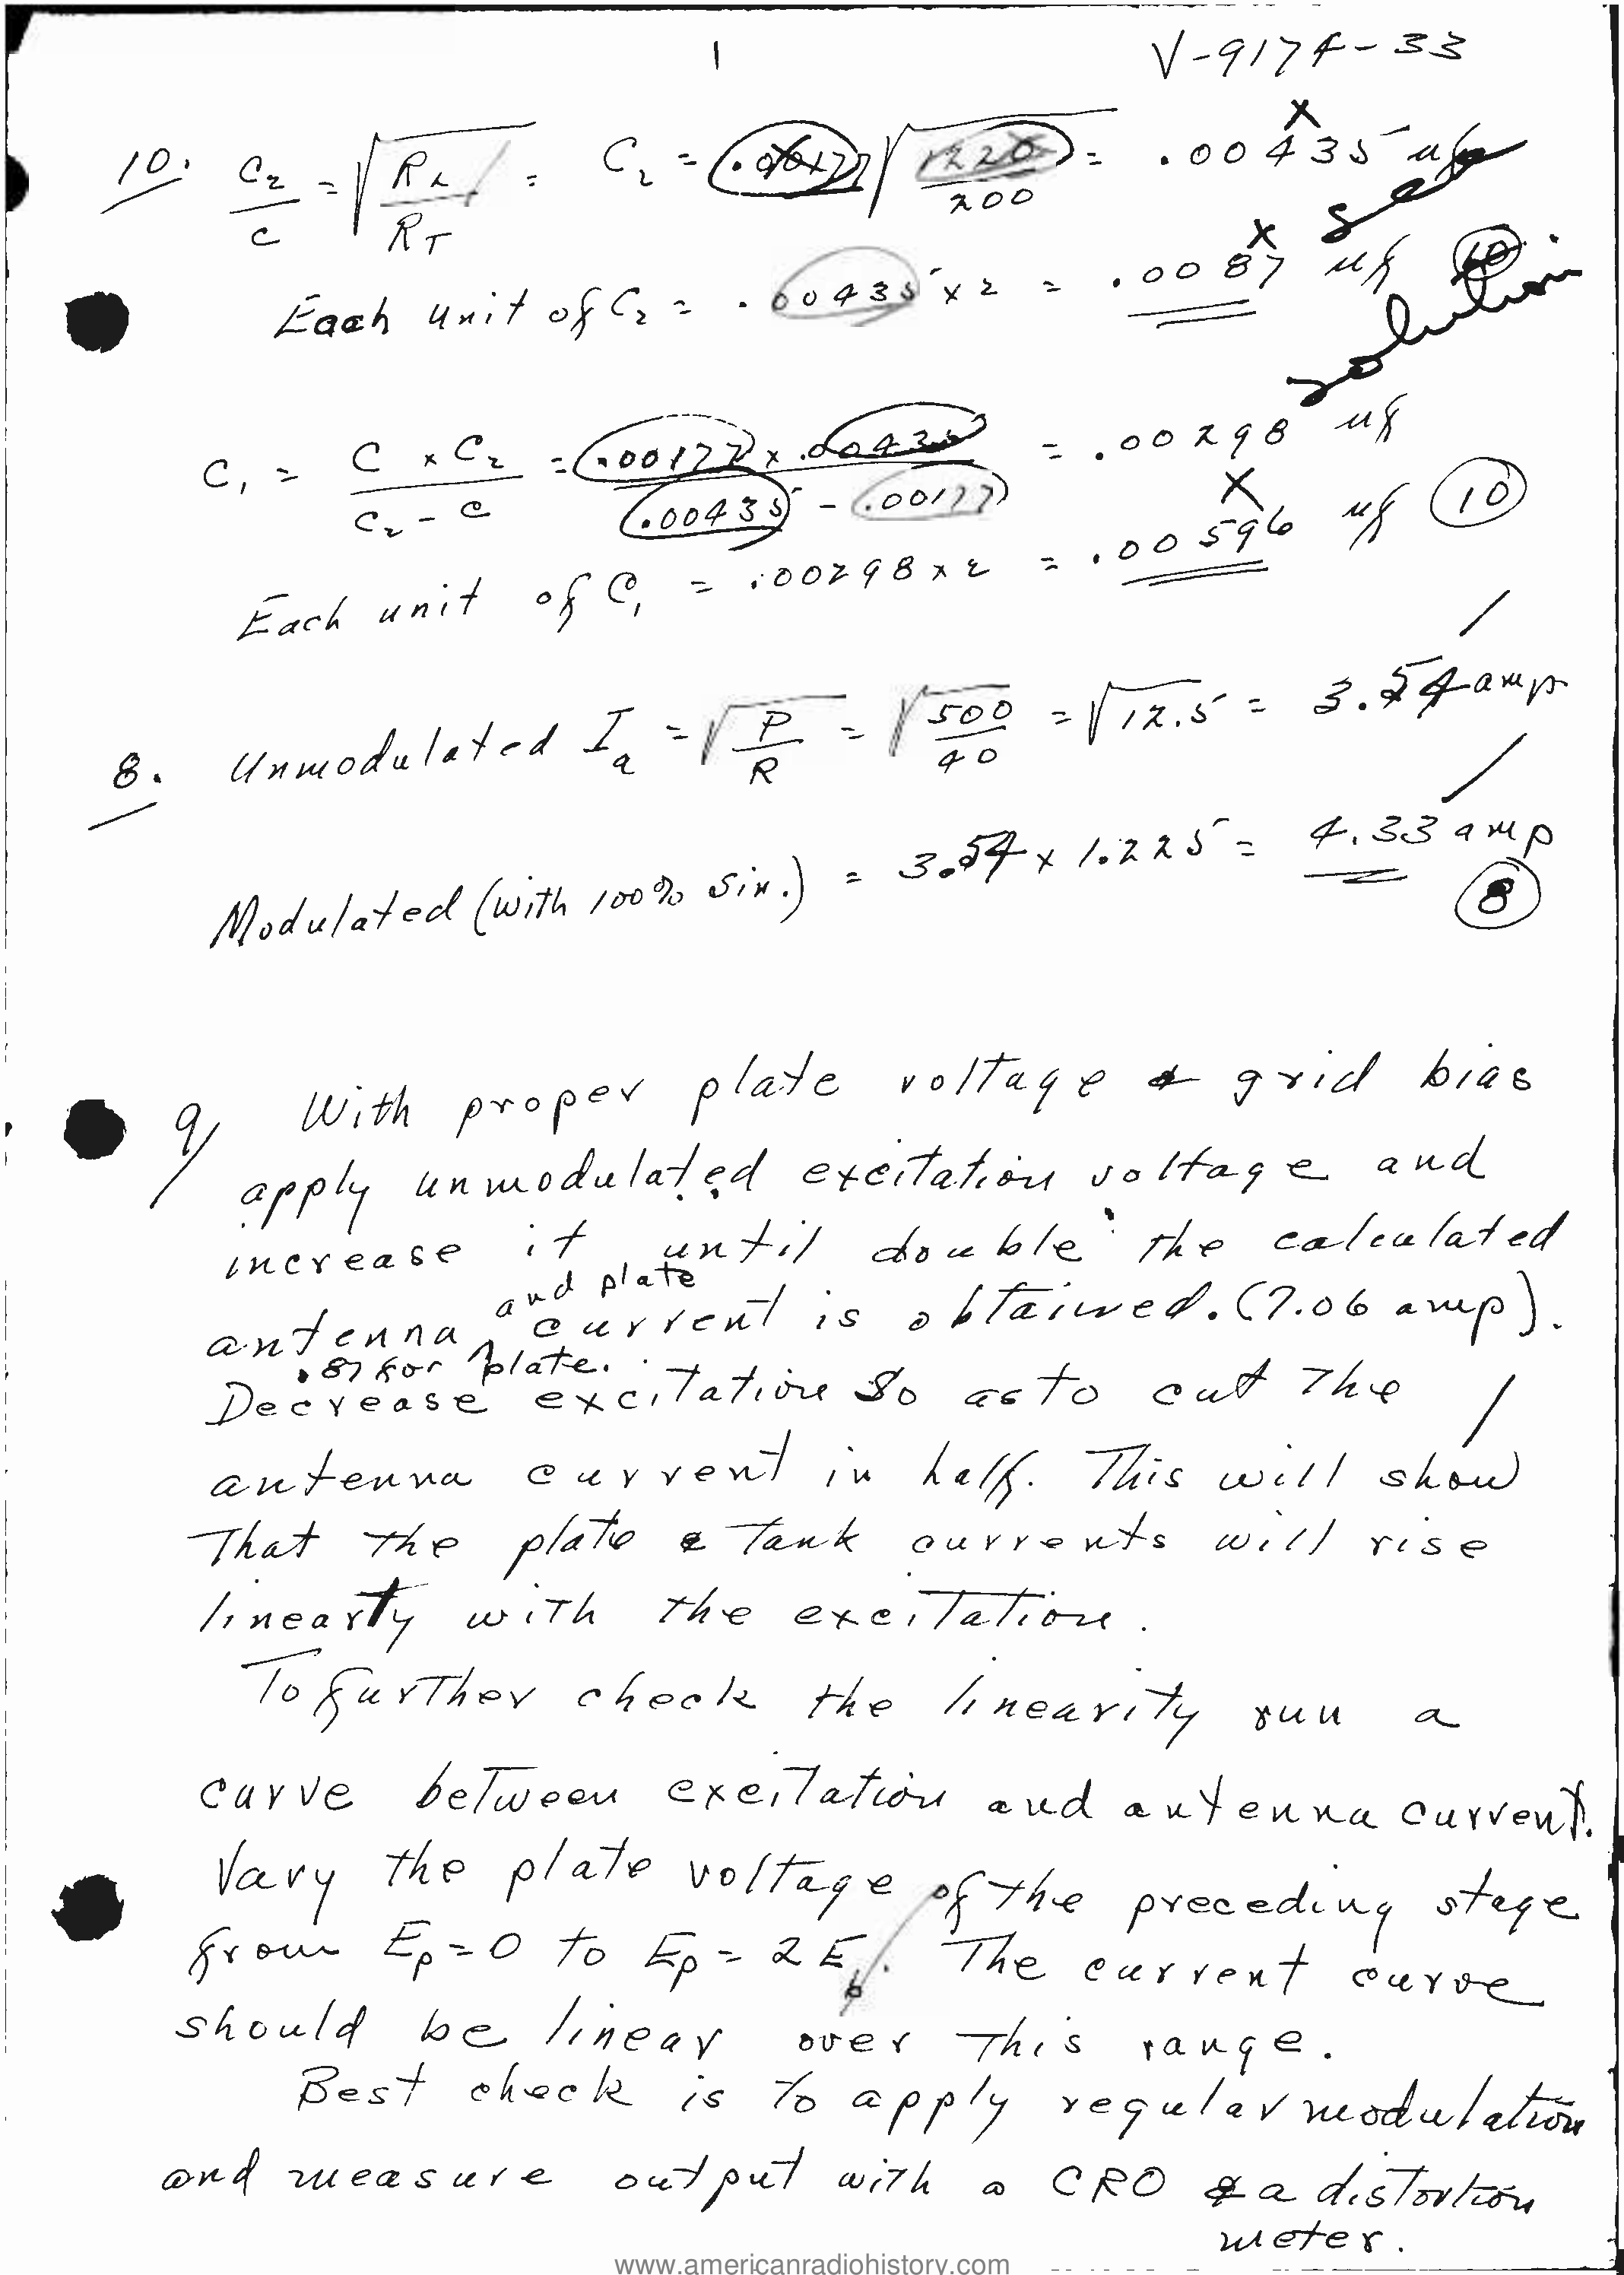 1
V-9174-33
10. C2/C = √(RL/RT) = C2 = .00177 √(1220/200) = .00435 uf
Each unit of C2 = .00435 x 2 = .0087 uf 10
see solution
C1 = C x C2 / C2 - C = .00177 x .00435 / .00435 - .00177 = .00298 uf
Each unit of C1 = .00298 x 2 = .00596 uf 10
8. Unmodulated Ia = √(P/R) = √(500/40) = √12.5 = 3.54 amp
Modulated (with 100% Sin.) = 3.54 x 1.225 = 4.33 amp
8
9/ With proper plate voltage & grid bias
apply unmodulated excitation voltage and
increase it until double the calculated
and plate
antenna ^ current is obtained. (7.06 amp).
.87 for plate.
Decrease excitation so as to cut the
antenna current in half. This will show
That the plate & Tank currents will rise
linearly with the excitation.
To further check the linearity run a
curve between excitation and antenna current.
Vary the plate voltage of the preceding stage
from Ep=0 to Ep = 2 Eb. The current curve
should be linear over This range.
Best check is To apply regular modulation
and measure output with a CRO & a distortion
meter.
www.americanradiohistory.com